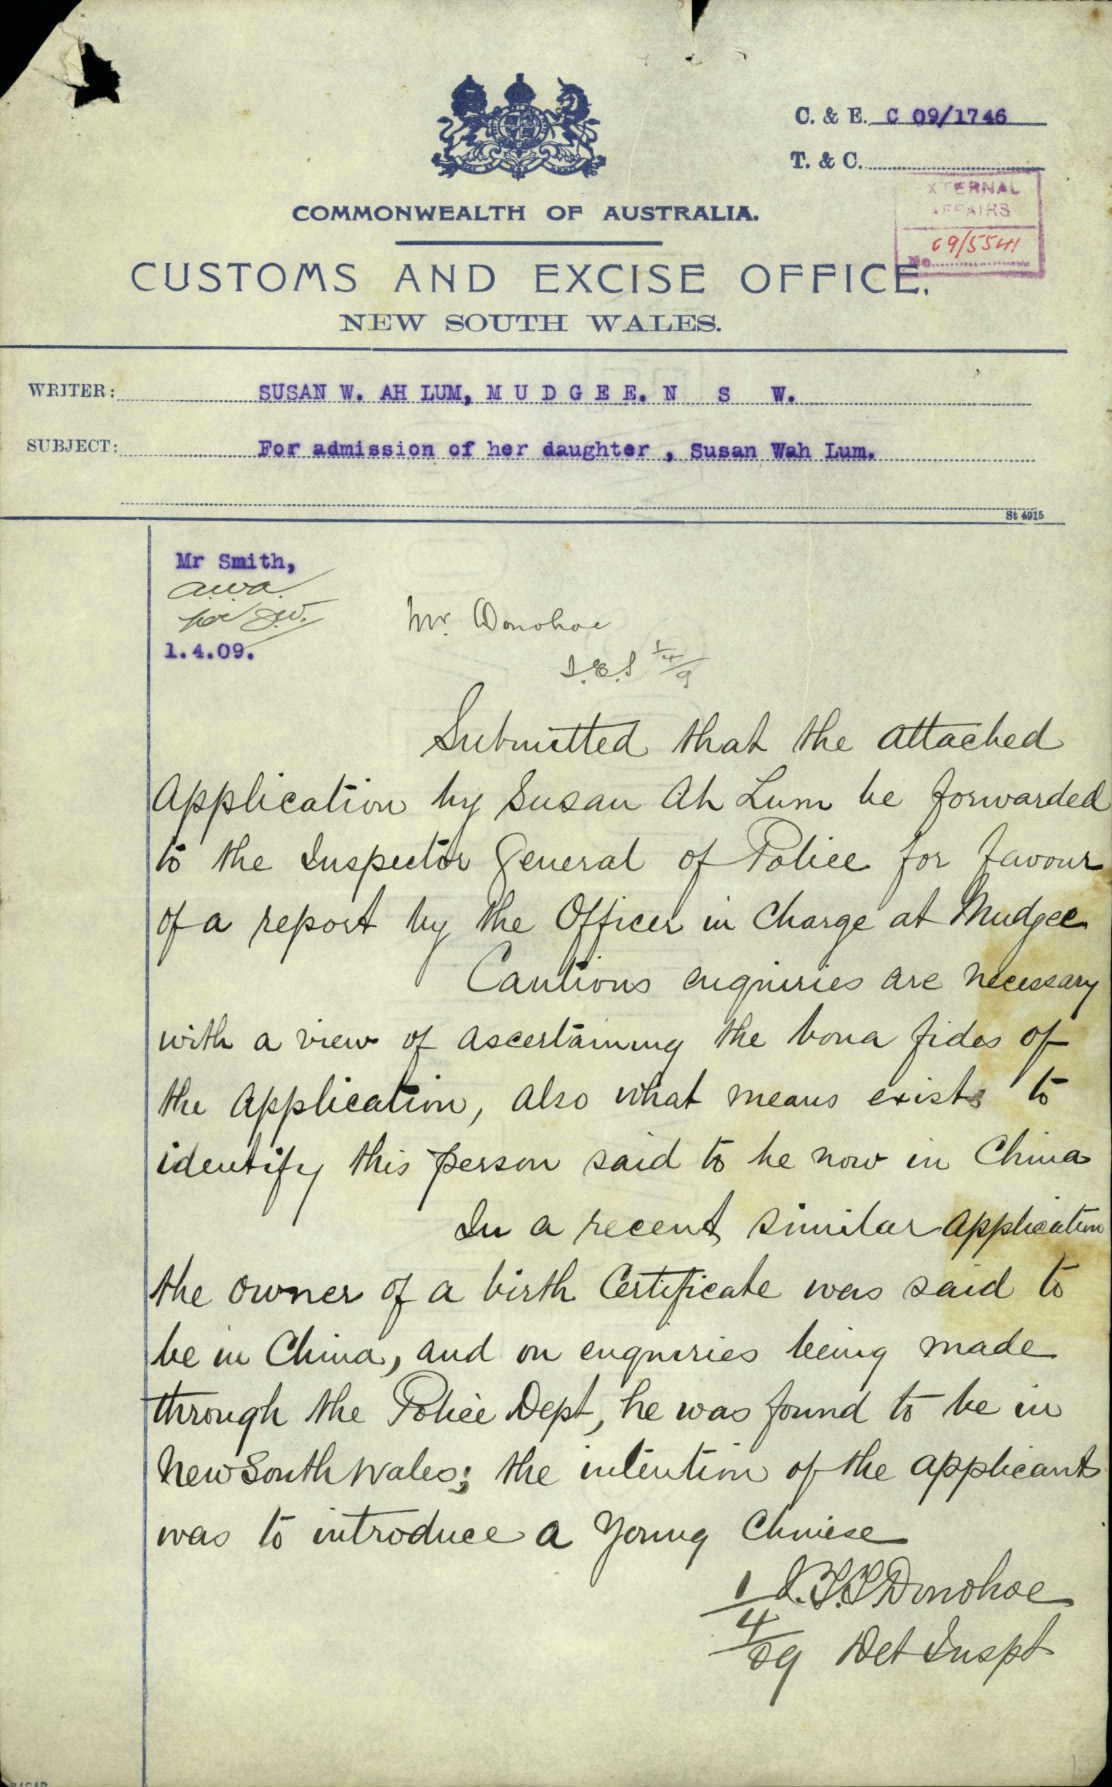 C. & E. C 09/1746
T. & C.
EXTERNAL
AFFAIRS
No 09/5541
COMMONWEALTH OF AUSTRALIA.
CUSTOMS AND EXCISE OFFICE.
NEW SOUTH WALES.
WRITER: SUSAN W. AH LUM, M U D G E E. N S W.
SUBJECT: For admission of her daughter , Susan Wah Lum.
St 4915
Mr Smith,
a.w.a.
1.4.09.
Mr. Donohoe
1/4/9
Submitted that the attached
Application by Susan Ah Lum be forwarded
to the Inspector General of Police for favour
of a report by the Officer in charge at Mudgee
Cautious enquiries are necessary
with a view of ascertaining the bona fides of
the Application, also what means exists to
identify this person said to be now in China
In a recent similar application
the owner of a birth Certificate was said to
be in China, and on enquiries being made
through the Police Dept, he was found to be in
New South Wales; the intention of the applicant
was to introduce a young Chinese
J.T.T. Donohoe
1/4/09 Det Inspt